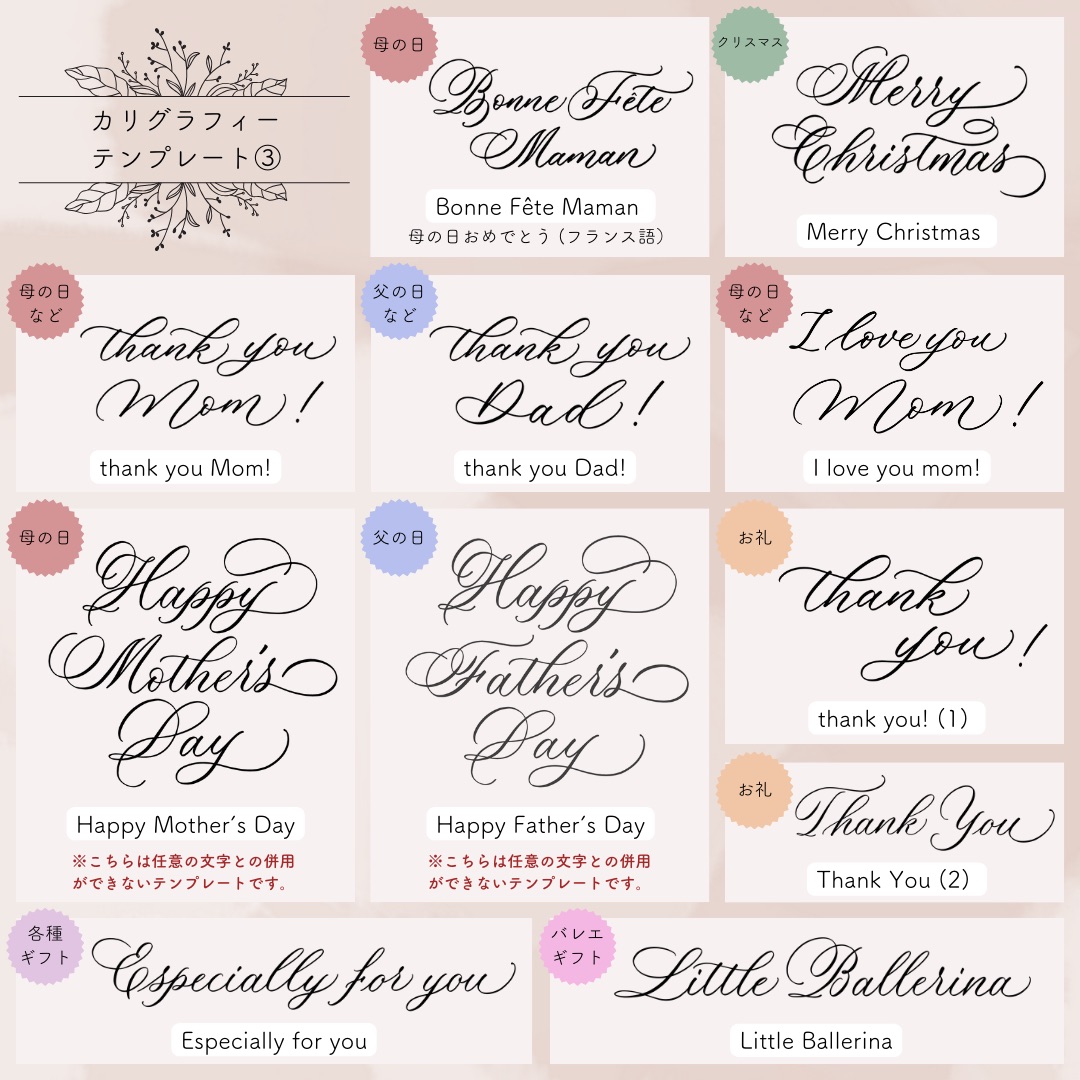 カリグラフィー
テンプレート③
母の日
Bonne Fête
Maman
Bonne Fête Maman
母の日おめでとう（フランス語）
クリスマス
Merry
Christmas
Merry Christmas
母の日
など
thank you
Mom!
thank you Mom!
父の日
など
thank you
Dad!
thank you Dad!
母の日
など
I love you
Mom!
I love you mom!
母の日
Happy
Mother's
Day
Happy Mother's Day
※こちらは任意の文字との併用
ができないテンプレートです。
父の日
Happy
Father's
Day
Happy Father's Day
※こちらは任意の文字との併用
ができないテンプレートです。
お礼
thank
you!
thank you! (1)
お礼
Thank You
Thank You (2)
各種
ギフト
Especially for you
Especially for you
バレエ
ギフト
Little Ballerina
Little Ballerina